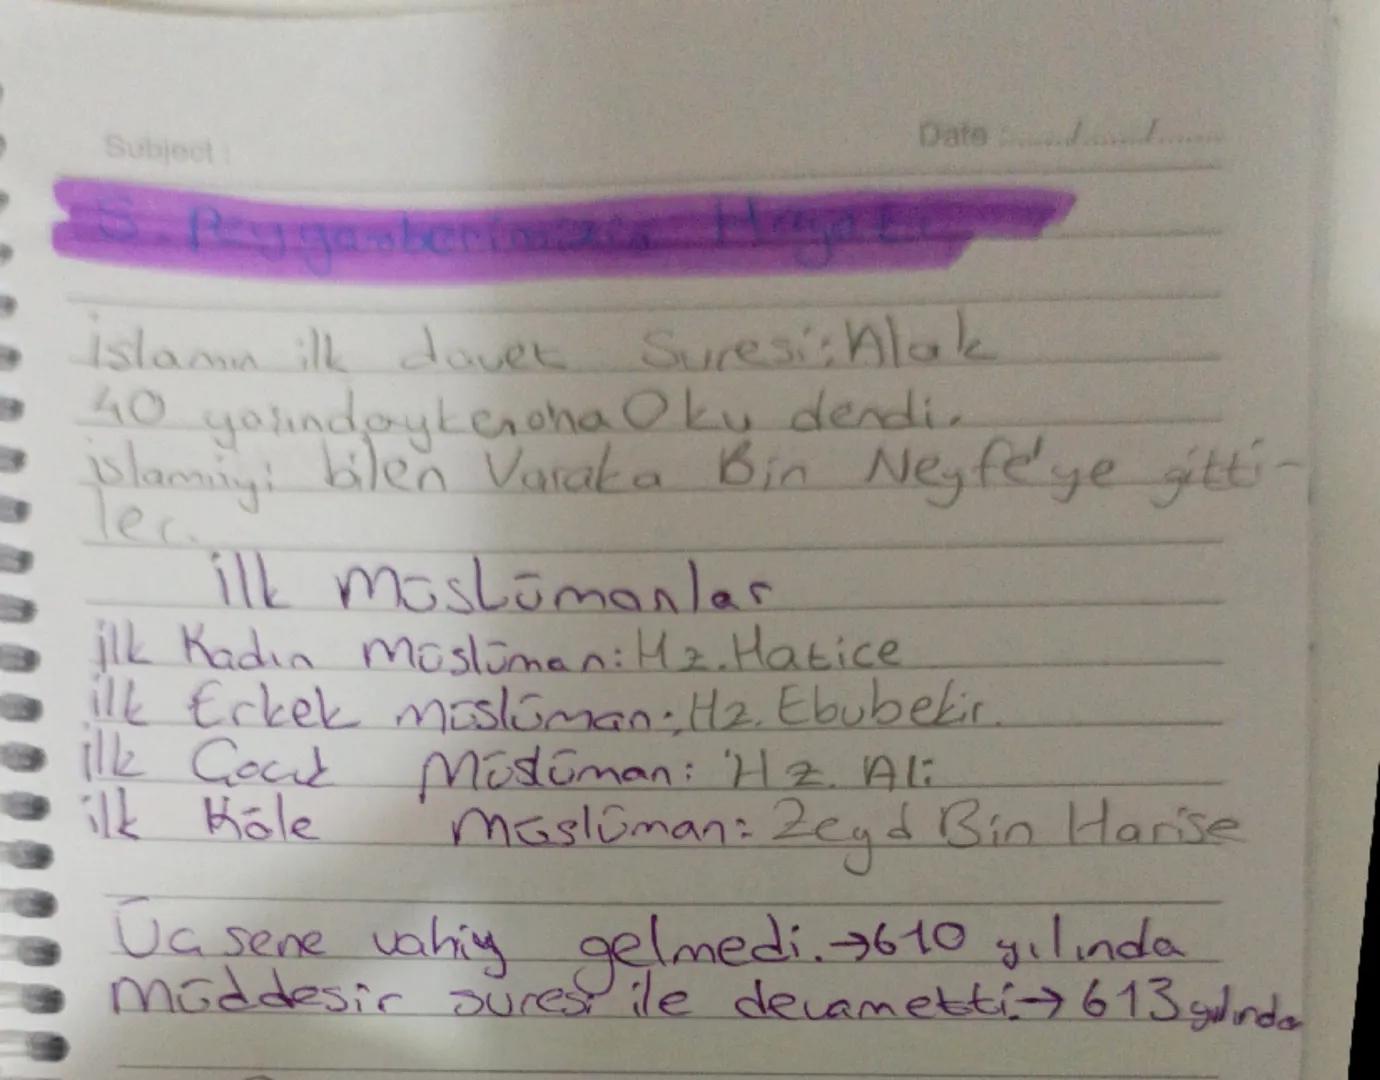 Subject :
Date : ...../...../.......
5. Peygamberimizin Hayatı
islamın ilk davet Suresi: Alak
40 yaşındayken ona Oku dendi.
islamiyi bilen Varaka Bin Neyfe'ye gitti-
ler.
ilk müslümanlar
ilk Kadın müslüman: Hz. Hatice
ilk Erkek müslüman: Hz. Ebubekir.
ilk Çocuk Müslüman: Hz. Ali
ilk Köle müslüman: Zeyd Bin Harise
Üç sene vahiy gelmedi. →610 yılında
müddesir suresi ile devametti→ 613 yılında